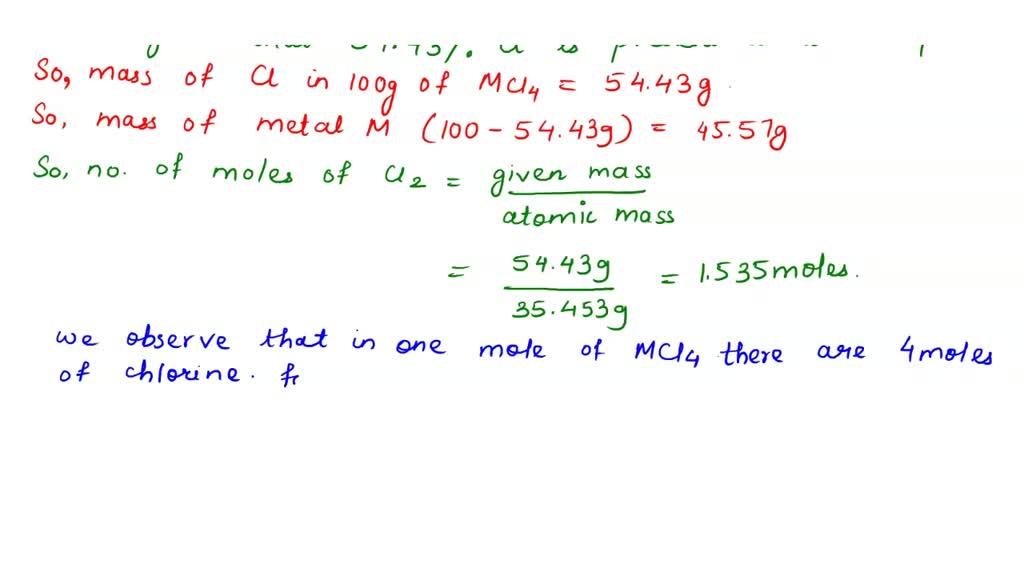 54.43%. Cl is
So, mass of Cl in 100g of MCl4 = 54.43g
So, mass of metal M (100 - 54.43g) = 45.57g
So, no. of moles of Cl2 = given mass
atomic mass
= 54.43g / 35.453g = 1.535 moles.
we observe that in one mole of MCl4 there are 4 moles
of chlorine. fr